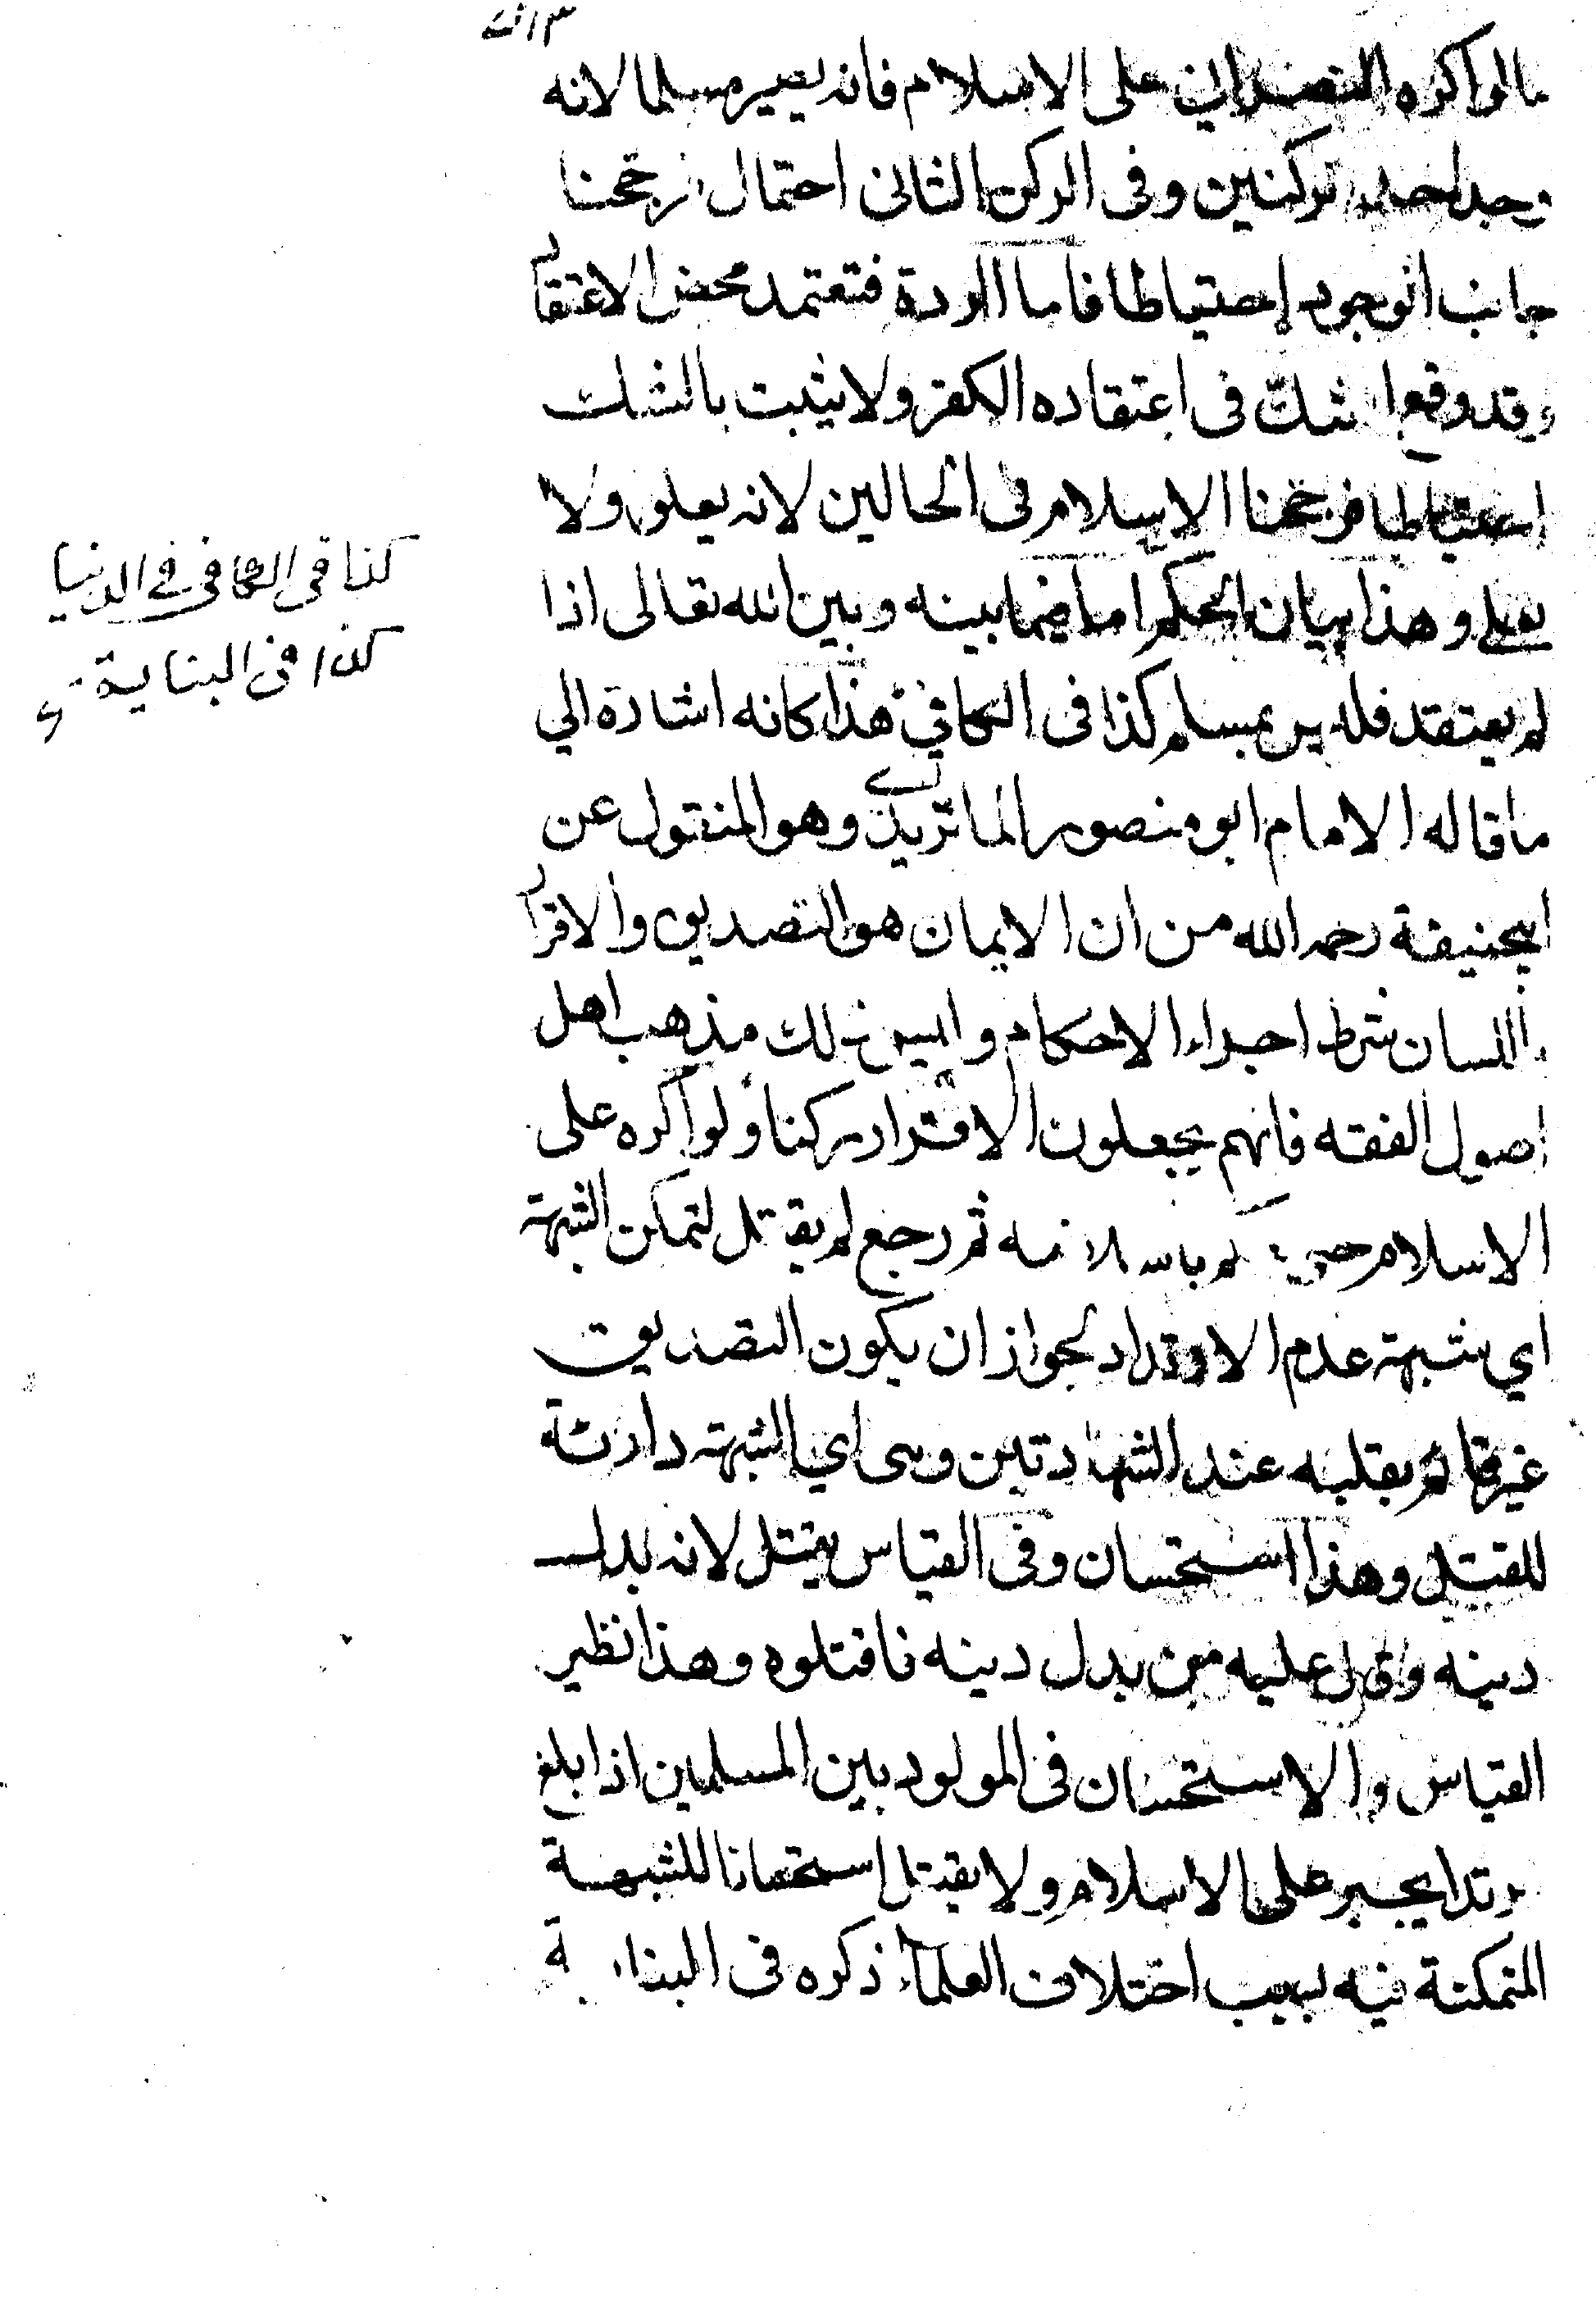 ما لو اكره النصراني على الاسلام فانه يصير مسلما لانه
وجد احد الركنين وفى الركن الثانى احتمال فرجحنا
جانب الوجود احتياطا فاما الردة فتعتمد محض الاعتقاد
وقد وقع الشك فى اعتقاده الكفر ولا يثبت بالشك
احتياطا فرجحنا الاسلام فى الحالين لانه يعلو ولا
يعلى وهذا بيان الحكم اما فيما بينه وبين الله تعالى اذا
لم يعتقد فليس بمسلم كذا فى الكافي هذا كانه اشارة الي
ما قاله الامام ابو منصور الماتريدى وهو المنقول عن
ابيحنيفة رحمه الله من ان الايمان هو التصديق والاقرار
باللسان شرط اجراء الاحكام وليس ذلك مذهب اهل
اصول الفقه فانهم يجعلون الاقرار ركنا ولو اكره على
الاسلام حتى حكم باسلامه ثم رجع لم يقتل لتمكن الشبهة
اي شبهة عدم الارتداد لجواز ان يكون التصديق
غير قائم بقلبه عند الشهادتين وهى اي الشبهة دارئة
للقتل وهذا استحسان وفى القياس يقتل لانه بدل
دينه وقال عليه من بدل دينه فاقتلوه وهذا نظير
القياس والاستحسان فى المولود بين المسلمين اذا بلغ
مرتدا يجبر على الاسلام ولا يقتل استحسانا للشبهة
المتمكنة فيه بسبب اختلاف العلماء ذكره فى البناية
كذا فى الكافى فى الدنيا
كذا فى البناية